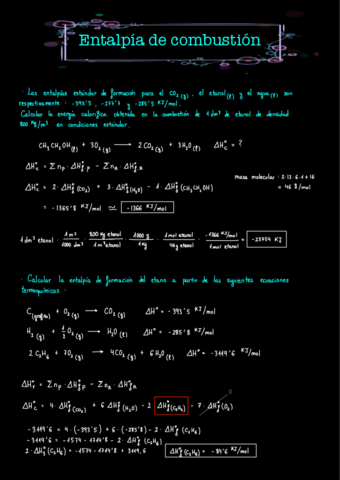 Entalpía de combustión
· Las entalpías estándar de formación para el CO₂ (g), el etanol (l) y el agua (l) son
respectivamente: -393'5, -277'7 y -285'5 KJ/mol.
Calcular la energía calorífica obtenida en la combustión de 1 dm³ de etanol de densidad
800 Kg/m³ en condiciones estándar.
CH₃CH₂OH (l) + 3O₂ (g) → 2CO₂ (g) + 3H₂O (l) ΔH°c = ?
ΔH°c = Σnp · ΔH°f p - Σnr · ΔH°f r
masa molecular: 2·12 + 6·1 + 16
= 46 g/mol
ΔH°c = 2 · ΔH°f (CO₂) + 3 · ΔH°f (H₂O) - 1 · ΔH°f (CH₃CH₂OH)
= -1365'8 KJ/mol ≃ -1366 KJ/mol
1 dm³ etanol · 1 m³/1000 dm³ · 800 Kg etanol/1 m³ etanol · 1000 g/1 Kg · 1 mol etanol/46 g etanol · -1366 KJ/mol/1 mol etanol = -23754 KJ
· Calcular la entalpía de formación del etano a partir de las siguientes ecuaciones
termoquímicas:
C (grafito) + O₂ (g) → CO₂ (g) ΔH° = -393'5 KJ/mol
H₂ (g) + 1/2 O₂ (g) → H₂O (l) ΔH° = -285'8 KJ/mol
2 C₂H₆ + 7O₂ (g) → 4CO₂ (g) + 6 H₂O (l) ΔH° = -3119'6 KJ/mol
ΔH° = Σnp · ΔH°f p - Σnr · ΔH°f r
ΔH°c = 4 · ΔH°f (CO₂) + 6 ΔH°f (H₂O) - 2 ΔH°f (C₂H₆) - 7 · ΔH°f (O₂) 0
-3119'6 = 4 · (-393'5) + 6 · (-285'8) - 2 · ΔH°f (C₂H₆)
-3119'6 = -1574 - 1714'8 - 2 · ΔH°f (C₂H₆)
2 · ΔH°f (C₂H₆) = -1574 - 1714'8 + 3119,6
ΔH°f (C₂H₆) = -84'6 KJ/mol